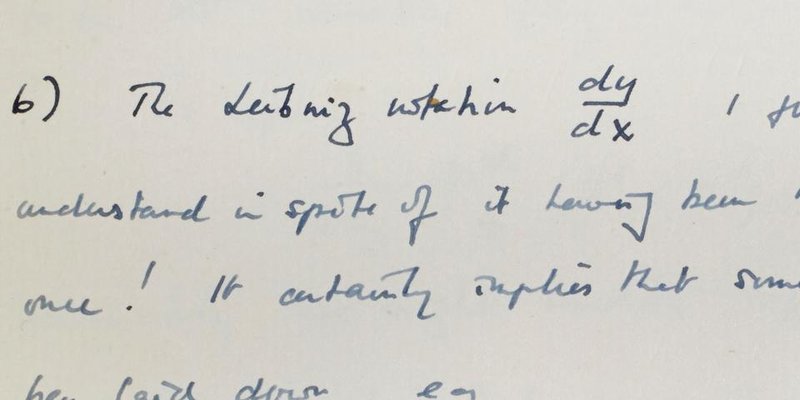 6) The Leibniz notation dy/dx I
understand in spite of it having been
once! It certainly implies that some
been laid down eg